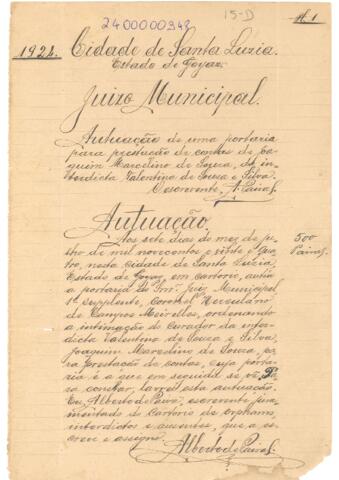 2400000342
15-D
fl. 1
1924. Cidade de Santa Luzia.
Estado de Goyaz.
Juizo Municipal.
Autuação de uma portaria
para prestação de contas de Joa-
quim Marcelino de Souza, da in-
terdicta Valentina de Souza e Silva.
O escrevente, A. Paiva
Autuação.
Aos sete dias do mez de
de mil novecentos e vinte e qua-
tro, nesta cidade de Santa Luzia,
Estado de Goyaz, em cartorio, autúo
a portaria do Snr. Juiz Municipal
1º supplente, Coronel Herculano
de Campos Meirelles, ordenando
a intimação do Curador da inter-
dicta Valentina de Souza e Silva,
Joaquim Marcelino de Souza, pa-
ra prestação de contas, cuja porta-
ria é a que em seguida se vê. Pa-
ra constar, lavrei esta autuação.
Eu, Alberto de Paiva, escrevente jura-
mentado do Cartorio de orphams,
interdictos e ausentes, que a es-
crevi e assigno.
Alberto de Paiva
500
Paiva